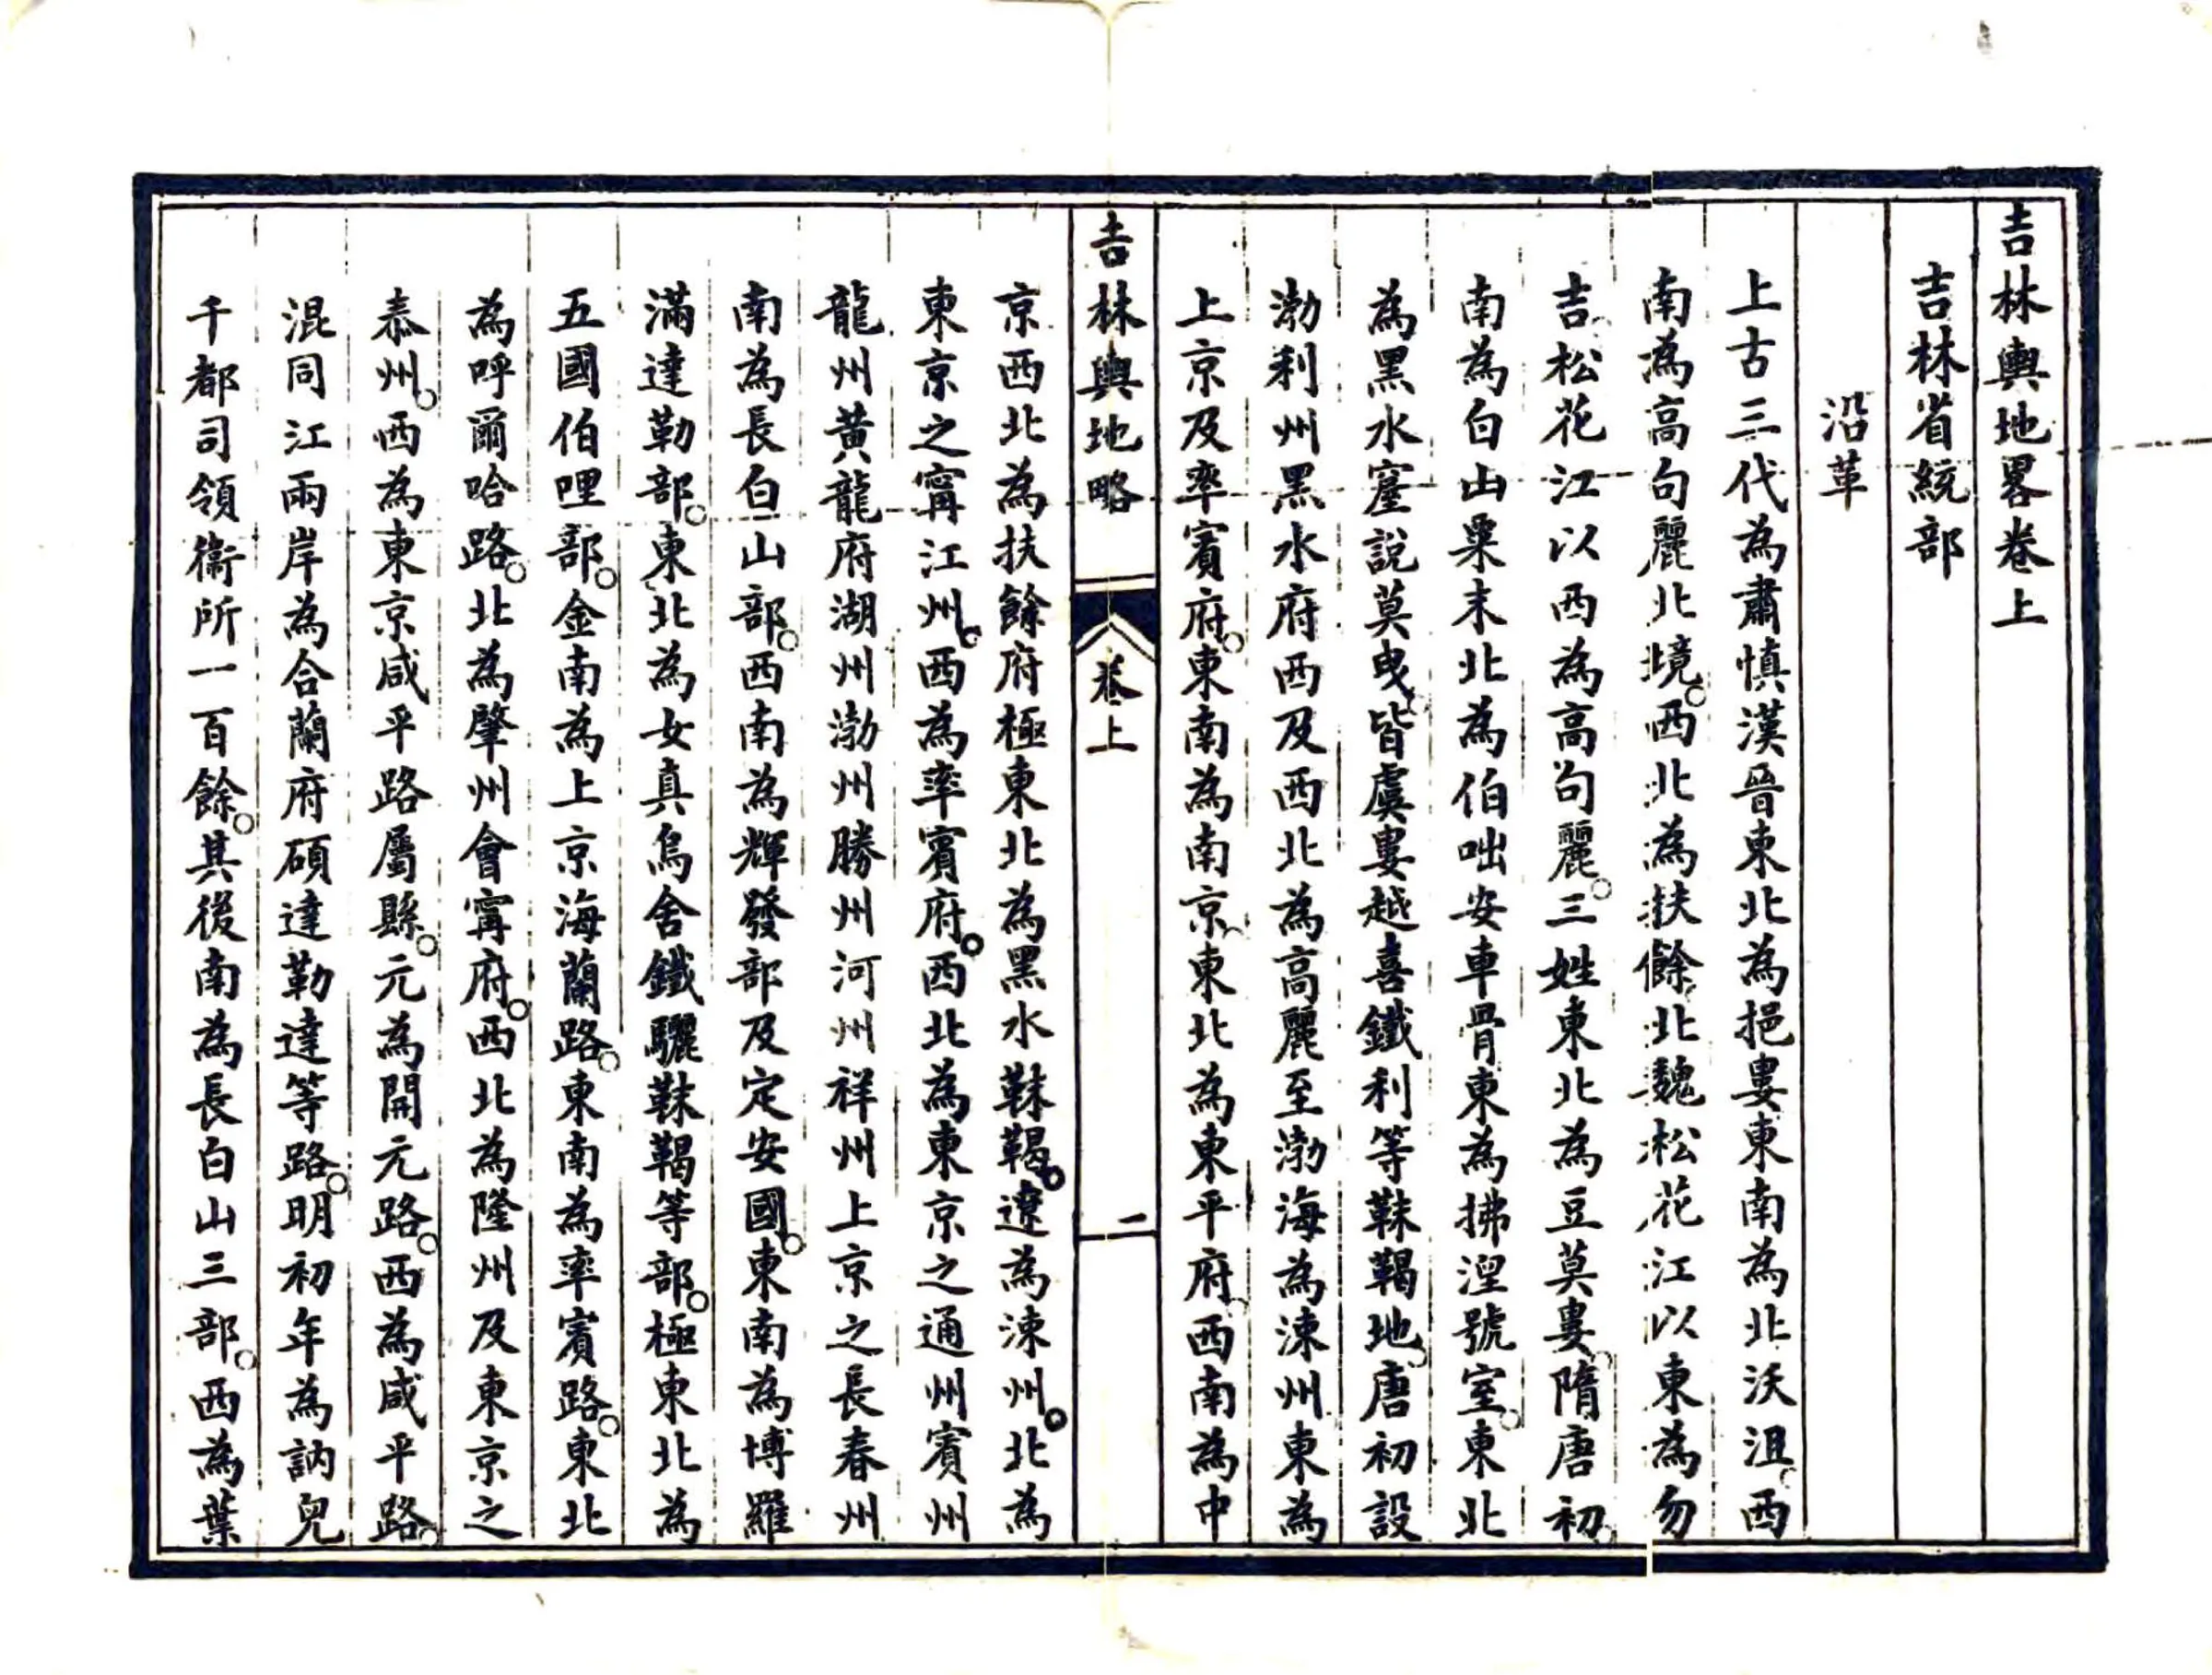 吉林輿地畧卷上
吉林省統部
沿革
上古三代為肅慎漢晉東北為挹婁東南為北沃沮西
南為高句麗北境。西北為扶餘北魏松花江以東為勿
吉松花江以西為高句麗。三姓東北為豆莫婁。隋唐初。
南為白山粟末北為伯咄安車骨東為拂涅號室。東北
為黑水窟說莫曳。皆虞婁越喜鐵利等靺鞨地。唐初設
渤利州黑水府西及西北為高麗至渤海為涑州東為
上京及率賓府。東南為南京。東北為東平府。西南為中
吉林輿地略 卷上 二
京西北為扶餘府極東北為黑水靺鞨。遼為涑州。北為
東京之甯江州。西為率賓府。西北為東京之通州賓州
龍州黃龍府湖州渤州勝州河州祥州上京之長春州
南為長白山部。西南為輝發部及定安國。東南為博羅
滿達勒部。東北為女真烏舍鐵驪靺鞨等部。極東北為
五國伯哩部。金南為上京海蘭路。東南為率賓路。東北
為呼爾哈路。北為肇州會甯府。西北為隆州及東京之
泰州。西為東京咸平路屬縣。元為開元路。西為咸平路。
混同江兩岸為合蘭府碩達勒達等路。明初年為訥兒
千都司領衞所一百餘。其後南為長白山三部。西為葉